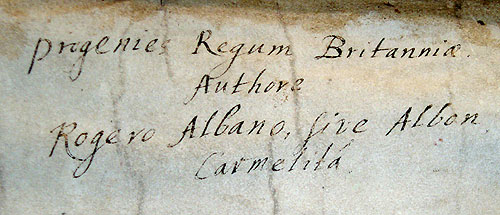 progenies Regum Britanniæ.
Authore
Rogero Albano, sive Albon
Carmelitâ